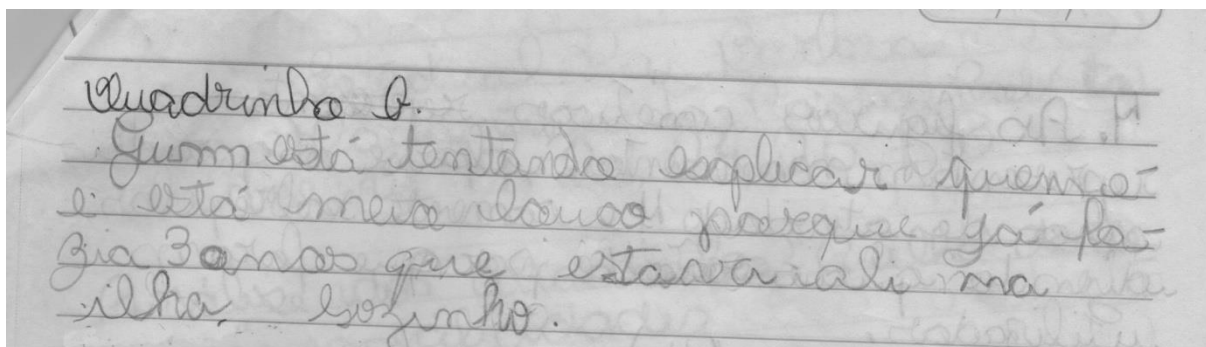 Quadrinho G.
Gunn está tentando explicar quem e-
e está meio louco porque já fa-
zia 3 anos que estava ali na
ilha, sozinho.